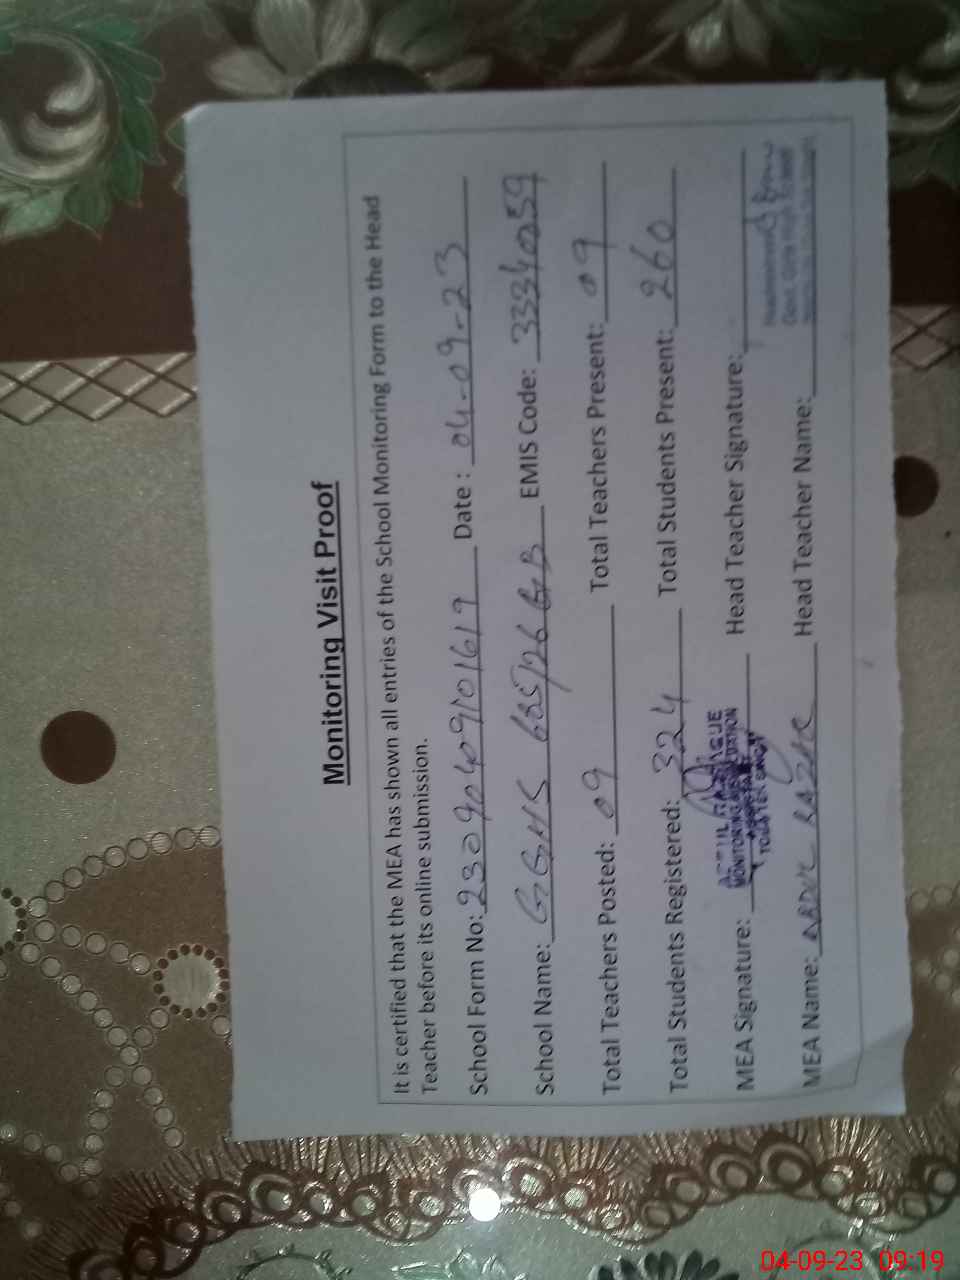 Monitoring Visit Proof
It is certified that the MEA has shown all entries of the School Monitoring Form to the Head
Teacher before its online submission.
School Form No: 23090409101619 Date : 04-09-23
School Name: GGHS 685/26 GB EMIS Code: 33340059
Total Teachers Posted: 09 Total Teachers Present: 09
Total Students Registered: 324 Total Students Present: 260
MEA Signature: Head Teacher Signature:
MONITORING
Govt. Girls High School
MEA Name: ABDUL RAZIK Head Teacher Name:
04-09-23 09:19